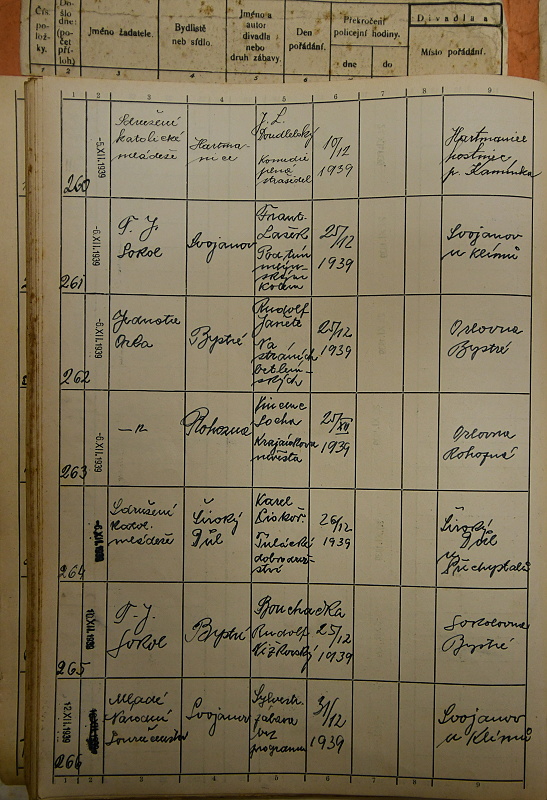 Čís.
po-
ložky.
Do-
šlo
dne:
(po-
čet
pří-
loh)
Jméno žadatele.
Bydliště
neb sídlo.
Jméno a
autor
divadla
nebo
druh zábavy.
Den
pořádání.
Překročení
policejní hodiny.
dne
do
Divadla a
Místo pořádání.
1 2 3 4 5 6 7 8 9
260
-5.XII.1939
Sdružení
katolické
mládeže
Hartma-
nice
J. L.
Komedie
plná
strašidel
10/12
1939
Hartmanice
hostinec
p. Kamínka
261
-6.XII.1939
T. J.
Sokol
Svojanov
Frant.
Pod tím
mlýn-
ským
kolem
25/12
1939
Svojanov
u Klímů
262
-6.XII.1939
Jednota
Orla
Bystré
Rudolf
Na
stráních
betlém-
ských
25/12
1939
Orlovna
Bystré
263
-6.XII.1939
—"—
Rohozná
Vincenc
Socha
Krajánkova
nevěsta
25/XII
1939
Orlovna
Rohozná
264
-6.XII.1939
Sdružení
katol.
mládeže
Široký
Důl
Karel
Tulácké
dobrodruž-
ství
26/12
1939
Široký
Důl
u
265
T. J.
Sokol
Bystré
Bouchačka
Rudolf
25/12
1939
Sokolovna
Bystré
266
12.XII.1939
Mladé
Národní
Souručenství
Svojanov
Sylvestr.
zábava
bez
programu
31/12
1939
Svojanov
u Klímů
1 2 3 4 5 6 7 8 9